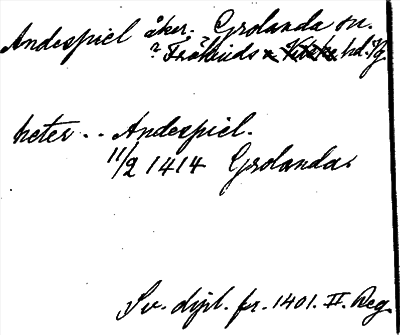 Andespiel åker. Grolanda sn.
? Frökinds hd. Vg
heter . . Andespiel.
11/2 1414 Grolanda.
Sv. dipl. fr. 1401. II. Reg.